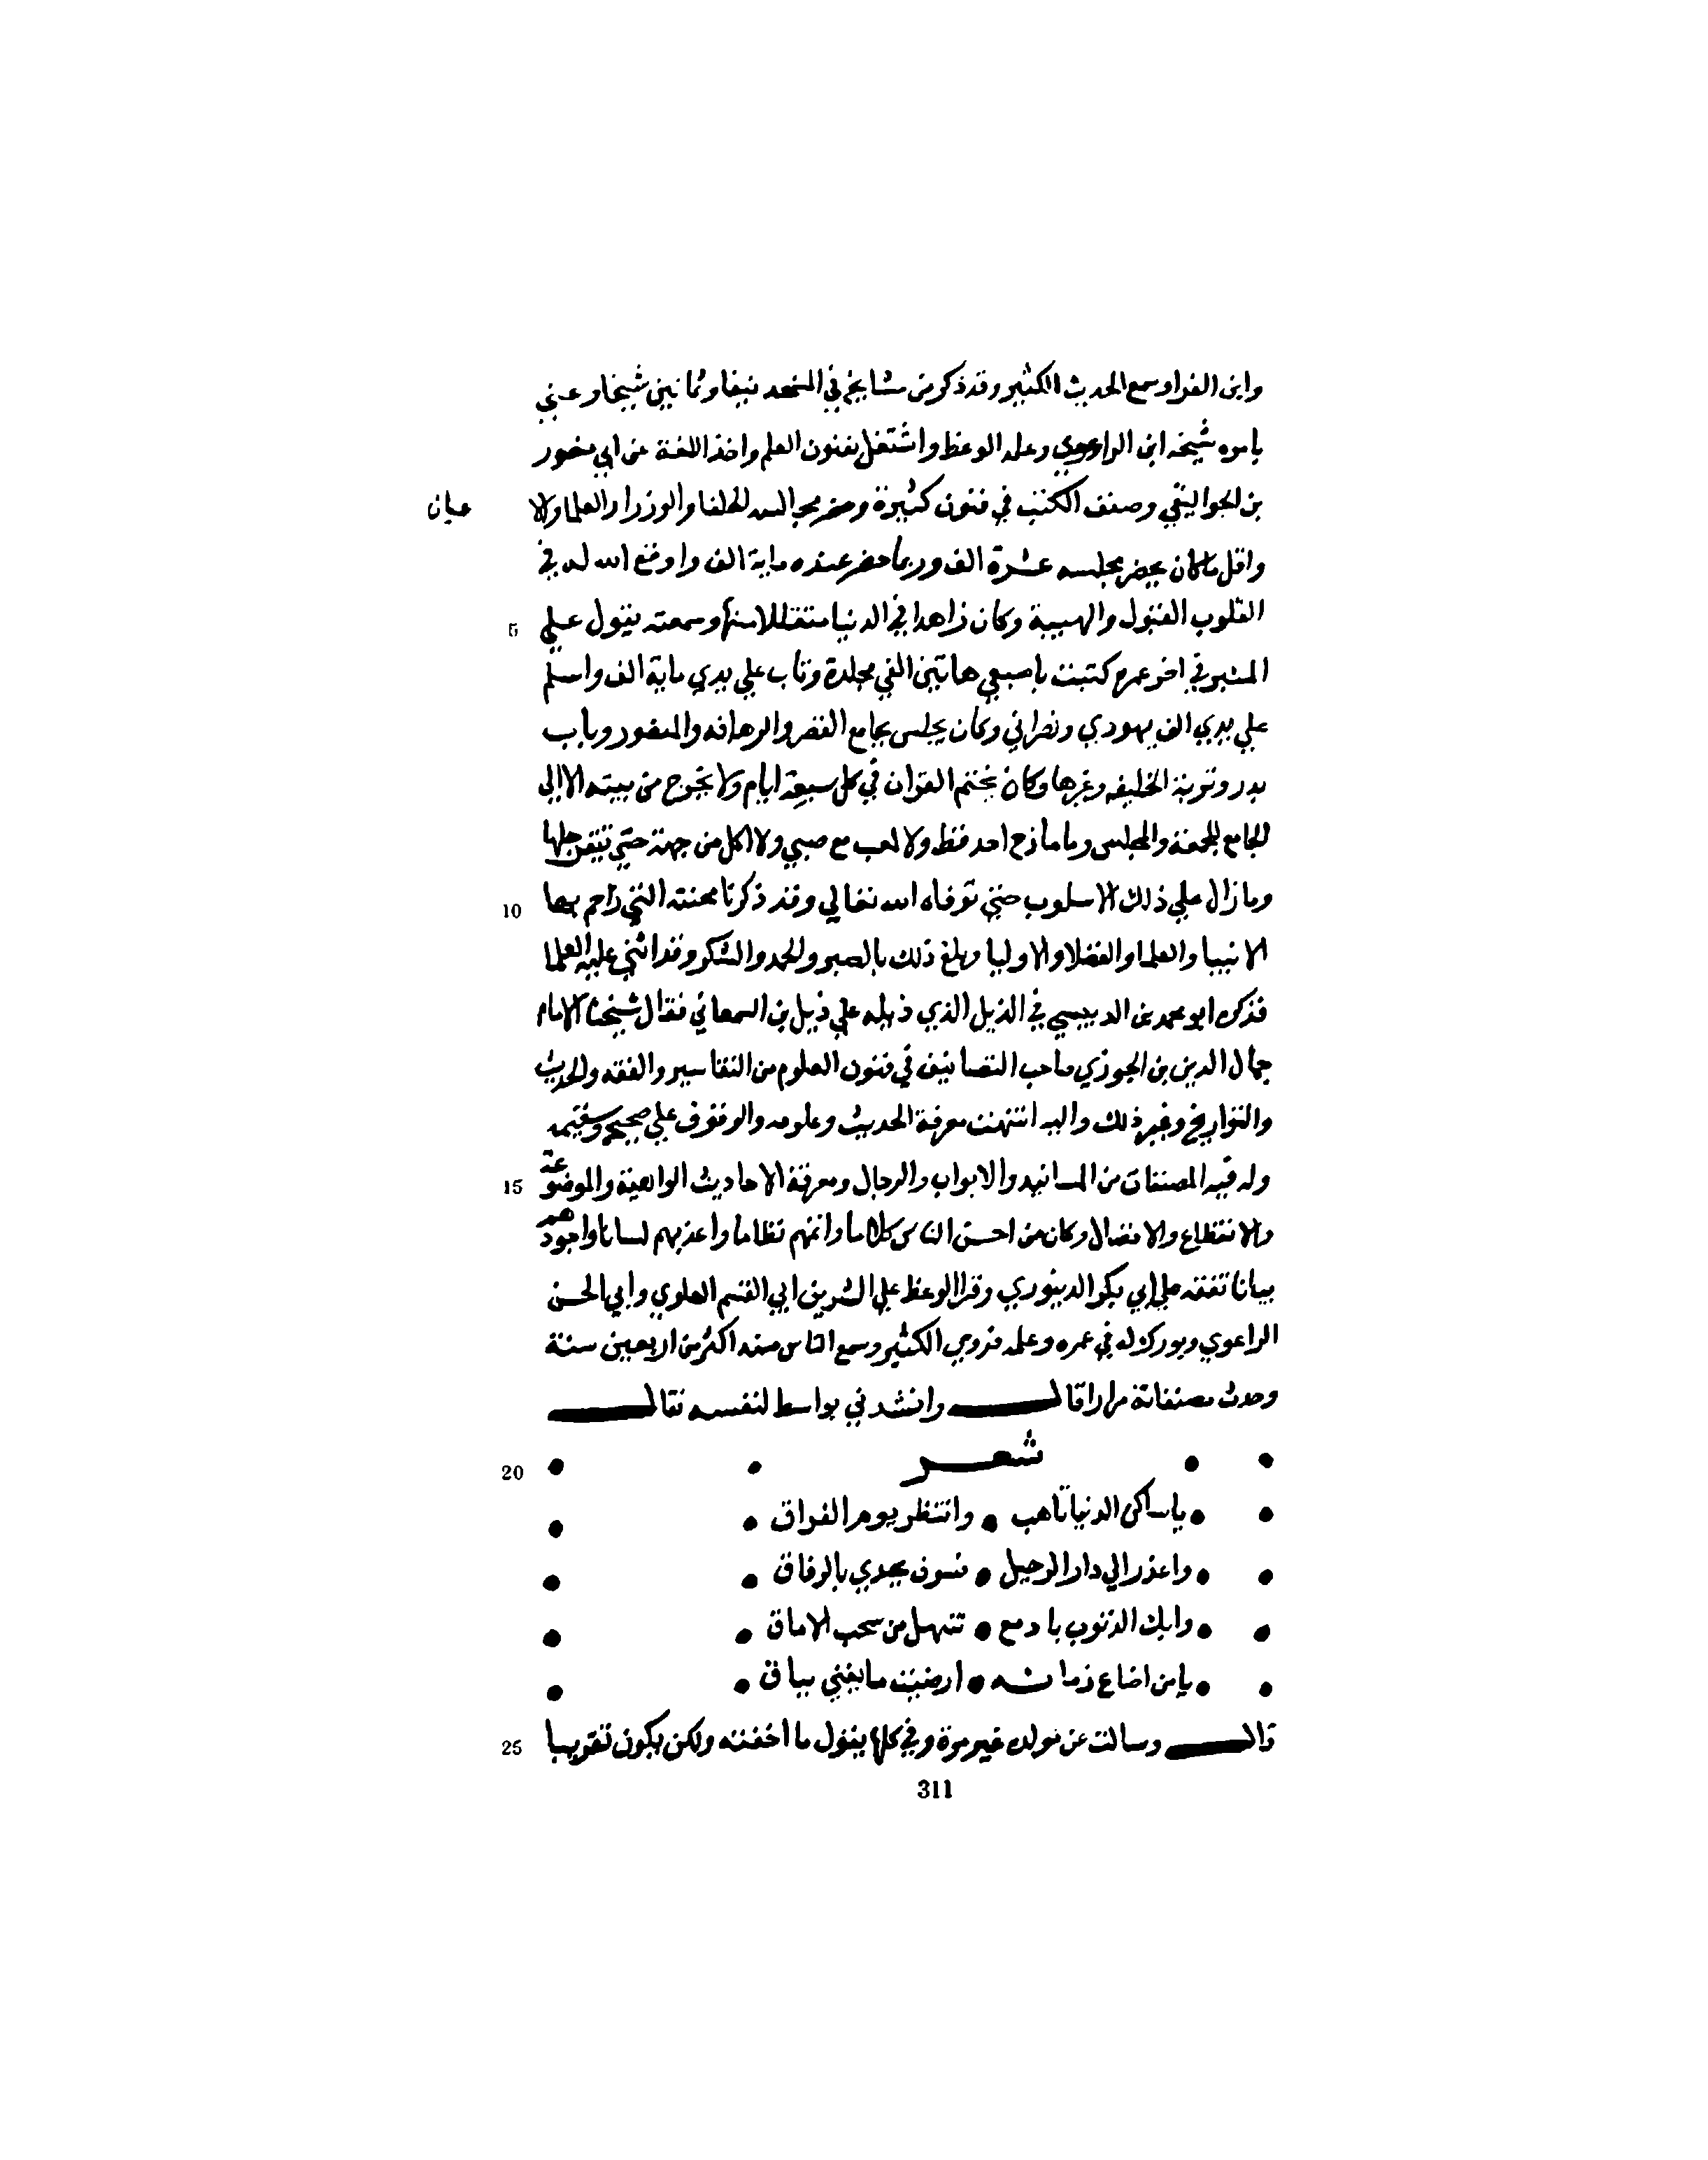 وابن الفرا وسمع الحديث الكثير وقد ذكر من مشايخه في المشيخه نيفا وثمانين شيخا وعني
بامره شيخه ابن الزاغوني وعلمه الوعظ واشتغل بفنون العلم واخذ اللغة عن ابي منصور
بن الجواليقي وصنف الكتب في فنون كثيرة وحضر مجالسه الخلفا والوزرا والعلما والا عيان
واقل ما كان يحضر مجلسه عشرة الف وربما حضر عنده ماية الف واوقع الله له في
القلوب القبول والهيبة وكان زاهدا في الدنيا متقللا منها وسمعته يقول علي
المنبر في اخر عمره كتبت باصبعي هاتين الفي مجلدة وتاب علي يدي ماية الف واسلم
علي يدي الف يهودي ونصراني وكان يجلس بجامع القصر والرصافه والمنصور وباب
بدر وتربة الخليفه وغيرها وكان يختم القران في كل سبعة ايام ولا يخرج من بيته الا الي
الجامع للجمعة والمجلس وما مازح احد قط ولا لعب مع صبي ولا اكل من جهة حتي تيقن حلها
وما زال علي ذلك الاسلوب حتي توفاه الله تعالي وقد ذكرنا محنته التي زاحم بها
الانبيا والعلما والفضلا والاوليا وبلغ ذلك بالصبر والحمد والشكر وقد اثني عليه العلما
فذكره ابو محمد بن الدبيسي في الذيل الذي ذيله علي ذيل بن السمعاني فقال شيخنا الامام
جمال الدين بن الجوزي صاحب التصانيف في فنون العلوم من التفاسير والفقه والحديث
والتواريخ وغير ذلك واليه انتهت معرفة الحديث وعلومه والوقوف علي صحيحه وسقيمه
وله فيه المصنفات من المسانيد والابواب والرجال ومعرفة الاحاديث الواهية والموضوعة
والانقطاع والاتصال وكان من احسن الناس كلاما واتمهم نظاما واعذبهم لسانا واجودهم
بيانا تفقه علي ابي بكر الدينوري وقرا الوعظ علي الشريف ابي القسم العلوي وابي الحسن
الزاغوي وبورك له في عمره وعلمه فروي الكثير وسمع الناس منه اكثر من اربعين سنة
وحدث بمصنفاته مرارا قال وانشدني بواسط لنفسه فقال
شعر
يا ساكن الدنيا تاهب وانتظر يوم الفراق
واعذر الي دار الرحيل فسوف يحدي بالرفاق
وابك الذنوب بادمع تنهل من سحب الاماق
يا من اضاع زمانه ارضيت ما يفني بباق
قال وسالت عن مولده غير مرة وفي كلها يقول ما احققه ولكن يكون تقريبا
311